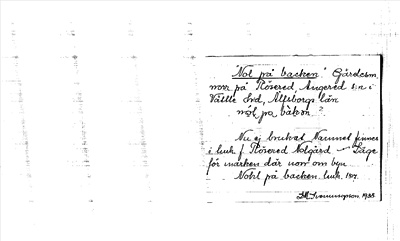 "Nol på backen." Gärdesm.
norr på Rösered, Angered s:n i
Vättle hrd, Älfsborgs län
nol pa bakен?
Nu ej brukat Namnet finnes
i huk. f. Rösered Nolgård — Läge
för marken där norr om byn
Nohl på backen. huk. 157.
1935